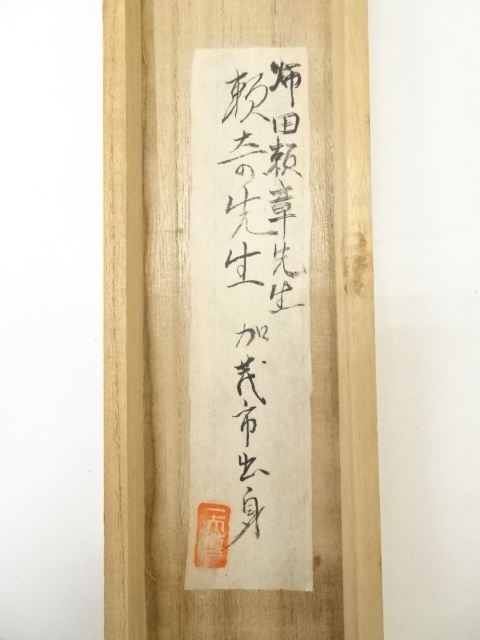 帰田頼章先生
頼奇の先生 加茂市出身